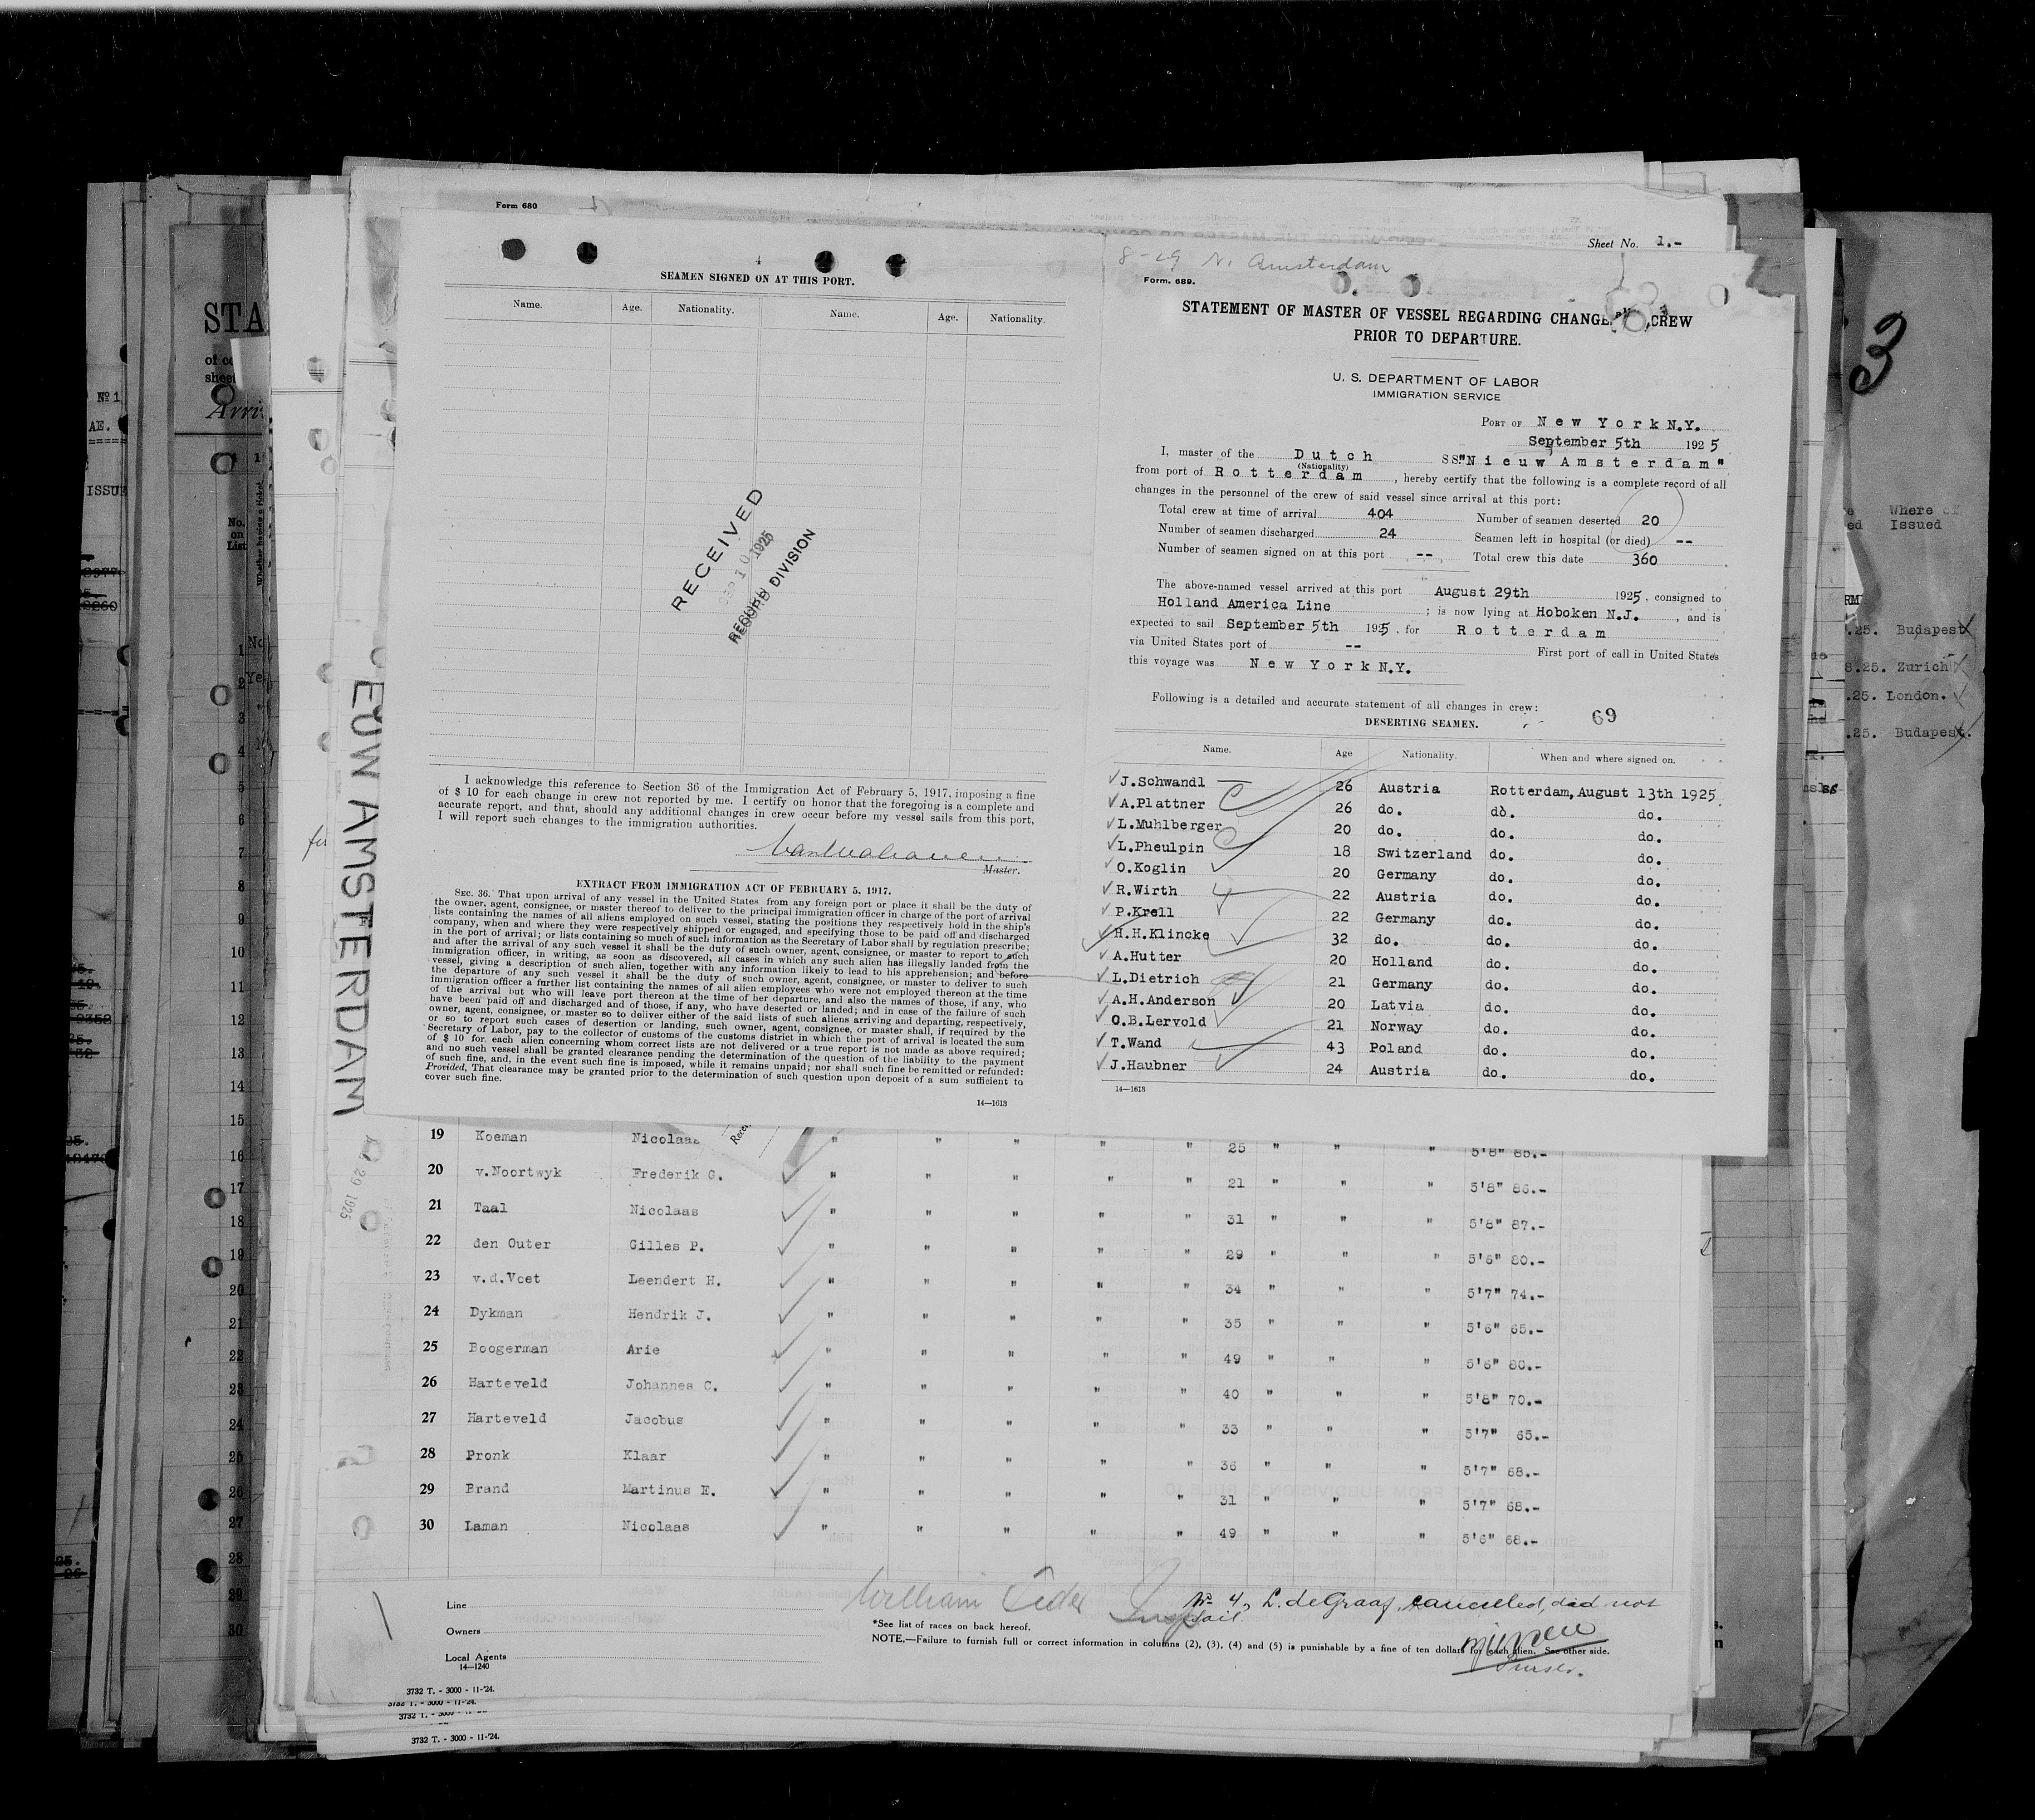 Form 680
Sheet No. 1.-
4
SEAMEN SIGNED ON AT THIS PORT.
Name. Age. Nationality. Name. Age. Nationality.
RECEIVED
SEP 10 1925
RECORD DIVISION
I acknowledge this reference to Section 36 of the Immigration Act of February 5, 1917, imposing a fine
of $ 10 for each change in crew not reported by me. I certify on honor that the foregoing is a complete and
accurate report, and that, should any additional changes in crew occur before my vessel sails from this port,
I will report such changes to the immigration authorities.
Master.
EXTRACT FROM IMMIGRATION ACT OF FEBRUARY 5, 1917.
SEC. 36. That upon arrival of any vessel in the United States from any foreign port or place it shall be the duty of
the owner, agent, consignee, or master thereof to deliver to the principal immigration officer in charge of the port of arrival
lists containing the names of all aliens employed on such vessel, stating the positions they respectively hold in the ship's
company, when and where they were respectively shipped or engaged, and specifying those to be paid off and discharged
in the port of arrival; or lists containing so much of such information as the Secretary of Labor shall by regulation prescribe;
and after the arrival of any such vessel it shall be the duty of such owner, agent, consignee, or master to report to such
immigration officer, in writing, as soon as discovered, all cases in which any such alien has illegally landed from the
vessel, giving a description of such alien, together with any information likely to lead to his apprehension; and before
the departure of any such vessel it shall be the duty of such owner, agent, consignee, or master to deliver to such
immigration officer a further list containing the names of all alien employees who were not employed thereon at the time
of the arrival but who will leave port thereon at the time of her departure, and also the names of those, if any, who
have been paid off and discharged and of those, if any, who have deserted or landed; and in case of the failure of such
owner, agent, consignee, or master so to deliver either of the said lists of such aliens arriving and departing, respectively,
or so to report such cases of desertion or landing, such owner, agent, consignee, or master shall, if required by the
Secretary of Labor, pay to the collector of customs of the customs district in which the port of arrival is located the sum
of $ 10 for. each alien concerning whom correct lists are not delivered or a true report is not made as above required;
and no such vessel shall be granted clearance pending the determination of the question of the liability to the payment
of such fine, and, in the event such fine is imposed, while it remains unpaid; nor shall such fine be remitted or refunded:
Provided, That clearance may be granted prior to the determination of such question upon deposit of a sum sufficient to
cover such fine.
14—1613
8-29 N. Amsterdam
Form. 689.
STATEMENT OF MASTER OF VESSEL REGARDING CHANGE CREW
PRIOR TO DEPARTURE.
U. S. DEPARTMENT OF LABOR
IMMIGRATION SERVICE
PORT OF New York N.Y.
September 5th 1925
I, master of the Dutch SS."Nieuw Amsterdam"
(Nationality)
from port of Rotterdam, hereby certify that the following is a complete record of all
changes in the personnel of the crew of said vessel since arrival at this port:
Total crew at time of arrival 404 Number of seamen deserted 20
Number of seamen discharged 24 Seamen left in hospital (or died) --
Number of seamen signed on at this port -- Total crew this date 360
The above-named vessel arrived at this port August 29th 1925, consigned to
Holland America Line ; is now lying at Hoboken N.J. , and is
expected to sail September 5th 1925, for Rotterdam
via United States port of -- First port of call in United States
this voyage was New York N.Y.
Following is a detailed and accurate statement of all changes in crew:
DESERTING SEAMEN. 69
Name. Age Nationality. When and where signed on.
J.Schwandl 26 Austria Rotterdam, August 13th 1925.
A.Plattner 26 do. do. do.
L.Muhlberger 20 do. do. do.
L.Pheulpin 18 Switzerland do. do.
O.Koglin 20 Germany do. do.
R.Wirth 22 Austria do. do.
P.Krell 22 Germany do. do.
H.H.Klincke 32 do. do. do.
A.Hutter 20 Holland do. do.
L.Dietrich 21 Germany do. do.
A.H.Anderson 20 Latvia do. do.
O.B.Lervold 21 Norway do. do.
T.Wand 43 Poland do. do.
J.Haubner 24 Austria do. do.
14—1613
19 Koeman Nicolaas " " " " " 25 " " " 5'8" 85.-
20 v.Noortwyk Frederik G. " " " " " 21 " " " 5'8" 86.-
21 Taal Nicolaas " " " " " 31 " " " 5'8" 87.-
22 den Outer Gilles P. " " " " " 29 " " " 5'6" 80.-
23 v.d.Voet Leendert H. " " " " " 34 " " " 5'7" 74.-
24 Dykman Hendrik J. " " " " " 35 " " " 5'6" 65.-
25 Boogerman Arie " " " " " 49 " " " 5'6" 80.-
26 Harteveld Johannes C. " " " " " 40 " " " 5'8" 70.-
27 Harteveld Jacobus " " " " " 33 " " " 5'7" 65.-
28 Pronk Klaar " " " " " 36 " " " 5'7" 68.-
29 Brand Martinus E. " " " " " 31 " " " 5'7" 68.-
30 Laman Nicolaas " " " " " 49 " " " 5'6" 68.-
Line
Owners
Local Agents
14—1240
William
No 4, L. de Graaf, cancelled, did not
sail
*See list of races on back hereof.
NOTE.—Failure to furnish full or correct information in columns (2), (3), (4) and (5) is punishable by a fine of ten dollars for each alien. See other side.
Purser.
3732 T. - 3000 - 11-'24.
3732 T. - 3000 - 11-'24.
3732 T. - 3000 - 11-'24.
3732 T. - 3000 - 11-'24.
EUW AMSTERDAM
29 1925
STA
of co
sheet
Arri
No.
on
List
Whether having a ticket
1
2
3
4
5
6
7
8
9
10
11
12
13
14
15
16
17
18
19
20
21
22
23
24
25
26
27
28
29
30
No 1
AE.
ISSUE
3
Where of
Issued
.25. Budapest
8.25. Zurich
.25. London.
.25. Budapest.